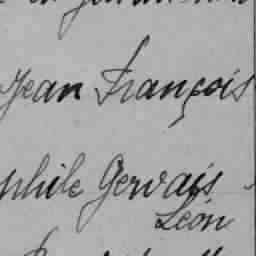 Jean François
phile Gervais
Léon